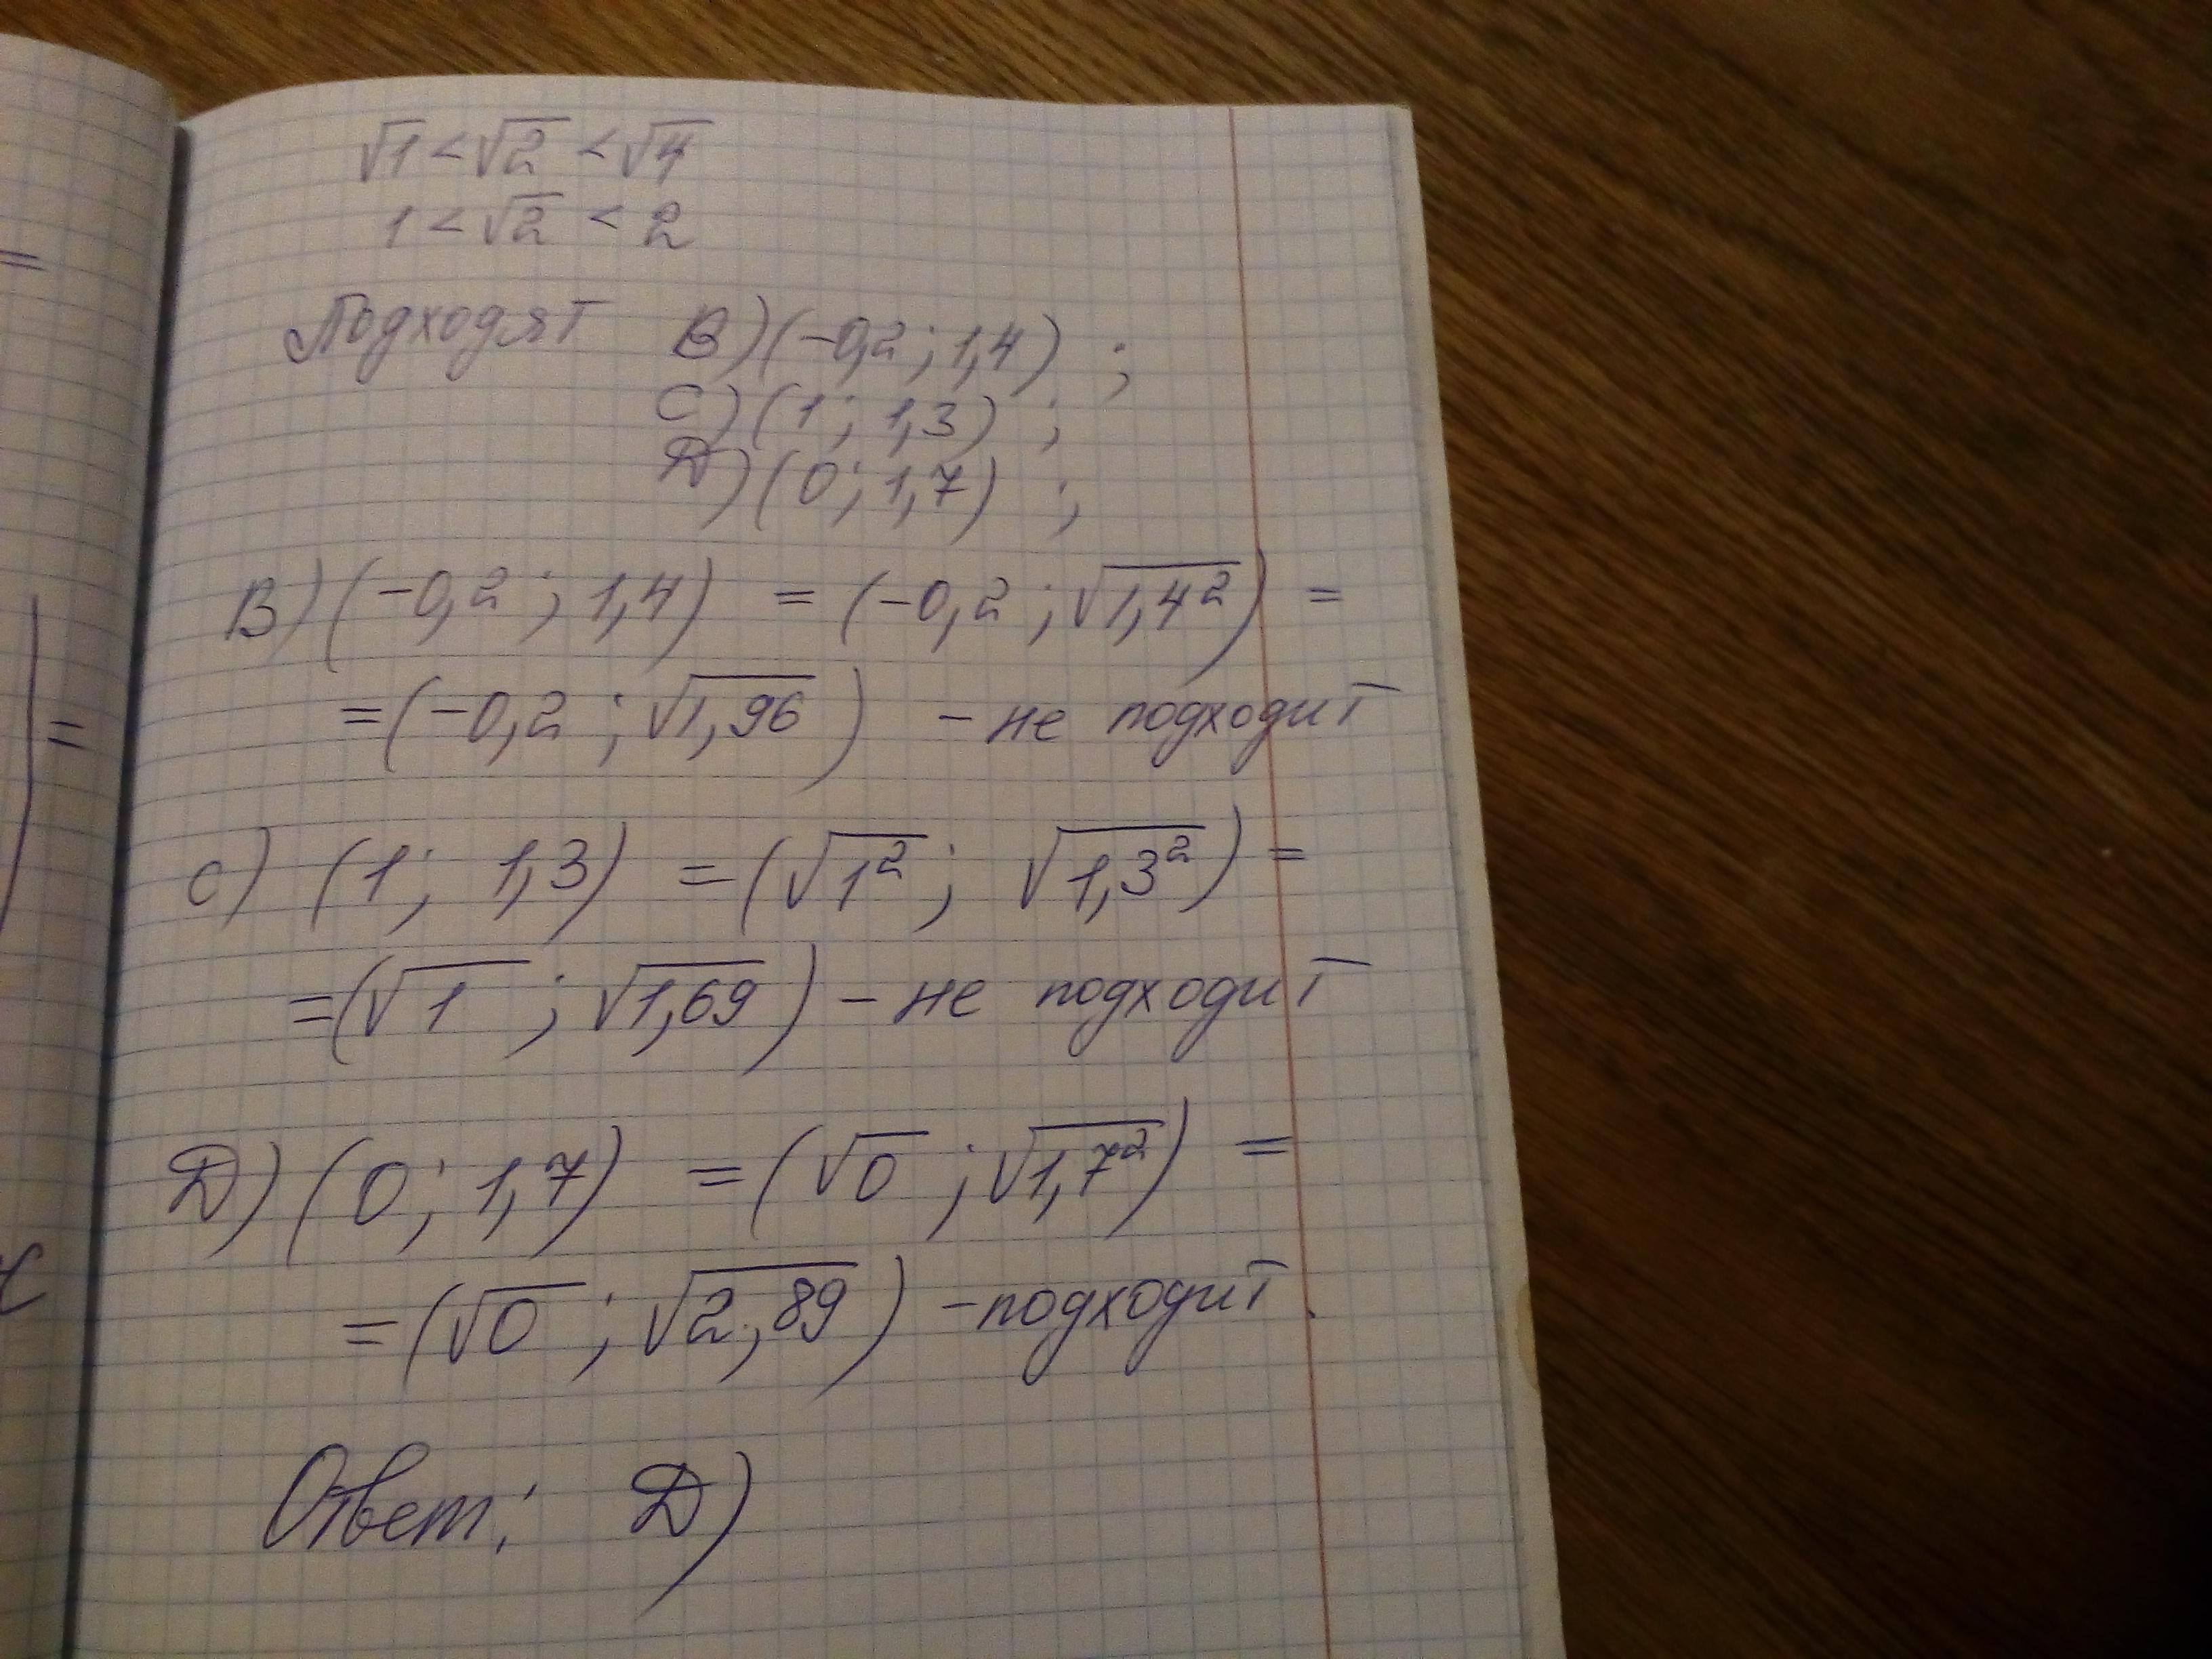 √1 < √2 < √4
1 < √2 < 2
Подходят B) (-0,2 ; 1,4) ;
C) (1 ; 1,3) ;
D) (0 ; 1,7) ;
B) (-0,2 ; 1,4) = (-0,2 ; √1,4²) =
= (-0,2 ; √1,96) - не подходит
C) (1 ; 1,3) = (√1² ; √1,3²) =
= (√1 ; √1,69) - не подходит
D) (0 ; 1,7) = (√0 ; √1,7²) =
= (√0 ; √2,89) - подходит.
Ответ: D)
=
=